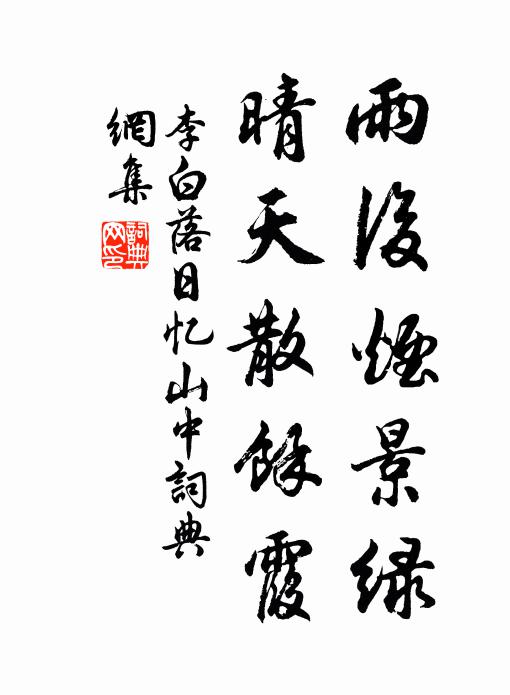 雨後煙景緑
晴天散餘霞
李白落日忆山中詞典
網集
詞典
网印